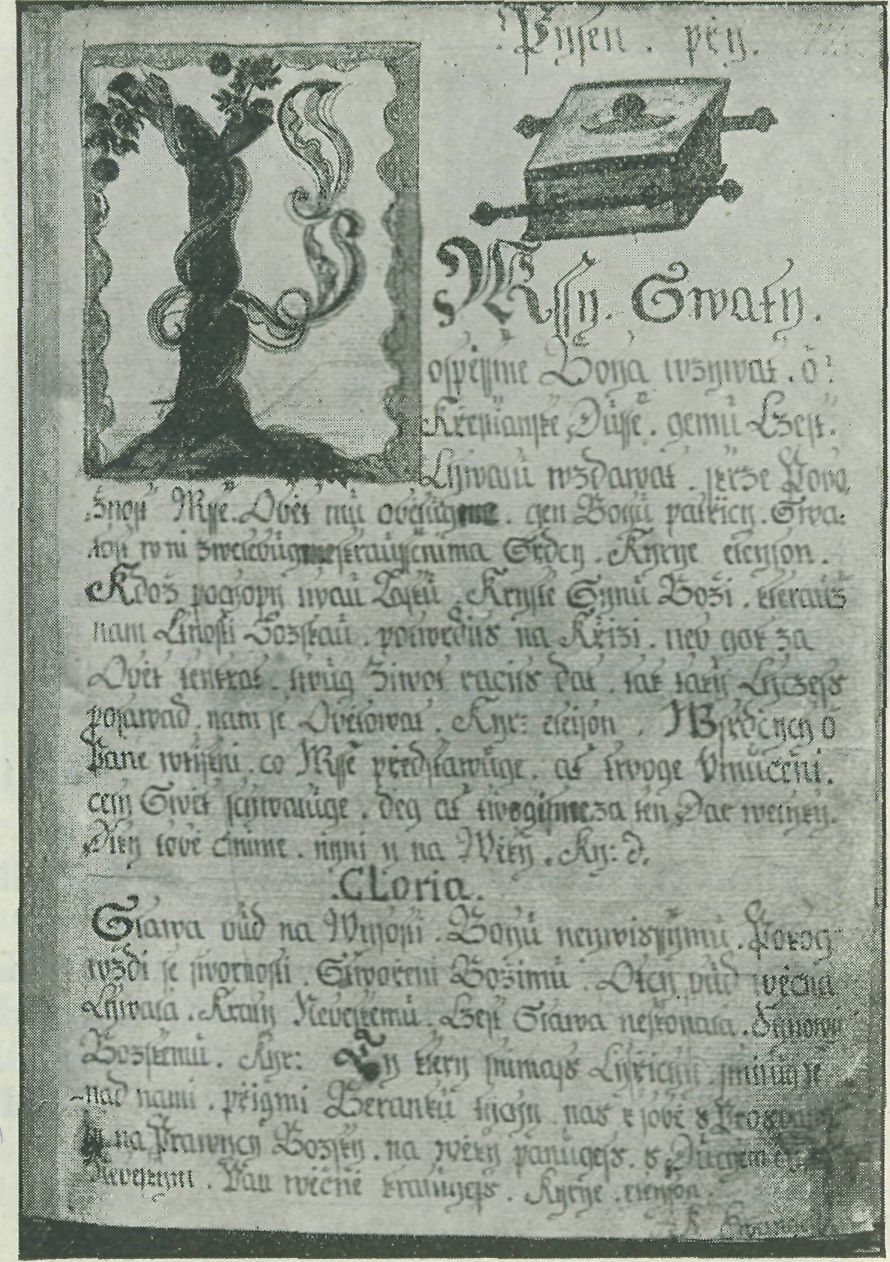 Pjsen. přy.
Mssy. Swaty.
ospěssme Boha wzywat. ó!
Křestianske Dusse. gemu Czest.
Chwalu wzdawat. skrze Pobo
žnost Msse. Obět mu obětugeme. gen Bohu patřicy. Swa:
tost w ni zwelebugme skraussenima Srdcy. Kyrye eleyson.
Kdož pochopy twau Lasku. Kryste Synu Boži. kterauž
nam Litosti Božskau. potwrdils na Křiži. neb gak za
Obět tenkrat. swug Život račils dat. tak taky Chczess
posawad. nam se Obětowat. Kyr: eleison. W Srdcych ó
Pane wtiskni. co Msse představuge. ať twoge Umučeni.
cely Swět schwaluge. deg ať twogi sme za ten Dar weliky.
Diky tobě činime. nyni y na Wěky. Ky: d.
.Gloria.
Slawa bud na Wysosti. Bohu neywyssymu. Pokog
wždi se stwornosti. Stwořeni Božimu. Otcy bud wěčna
Chwala. Krali Nebeskemu. Czest Slawa neskonala. Synowy
Božskemu. Kyr: Ty ktery snimass Hřichy. smilug se
nad nami. přigmi Beranku tichy. nas k sobě s Prosbami
ty na Prawycy Božsky. na wěky panugess. s Duchem
Nebeskym. Pan wěčně kralugess. Kyrye. eleyson.